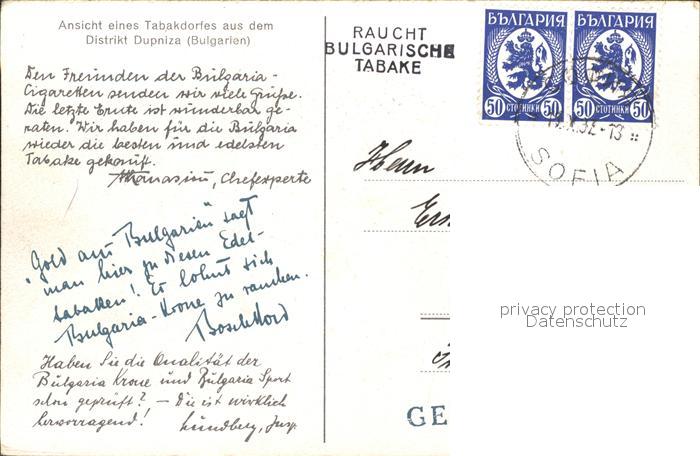 Ansicht eines Tabakdorfes aus dem
Distrikt Dupniza (Bulgarien)
Den Freunden der Bulgaria-
Cigaretten senden wir viele Grüße.
Die letzte Ernte ist wunderbar ge-
raten. Wir haben für die Bulgaria
wieder die besten und edelsten
Tabake gekauft.
Athanasiu, Chefexperte
"Gold aus Bulgarien" sagt
man hier zu diesen Edel-
tabaken! Es lohnt sich
Bulgaria-Krone zu rauchen.
Haben Sie die Qualität der
Bulgaria Krone und Bulgaria Sport
schon geprüft? – Die ist wirklich
hervorragend!
Lundberg, Insp.
RAUCHT
BULGARISCHE
TABAKE
БЪЛГАРИЯ БЪЛГАРИЯ
50 СТОТИНКИ 50 50 СТОТИНКИ 50
SOFIA
Herrn
privacy protection
Datenschutz
GE